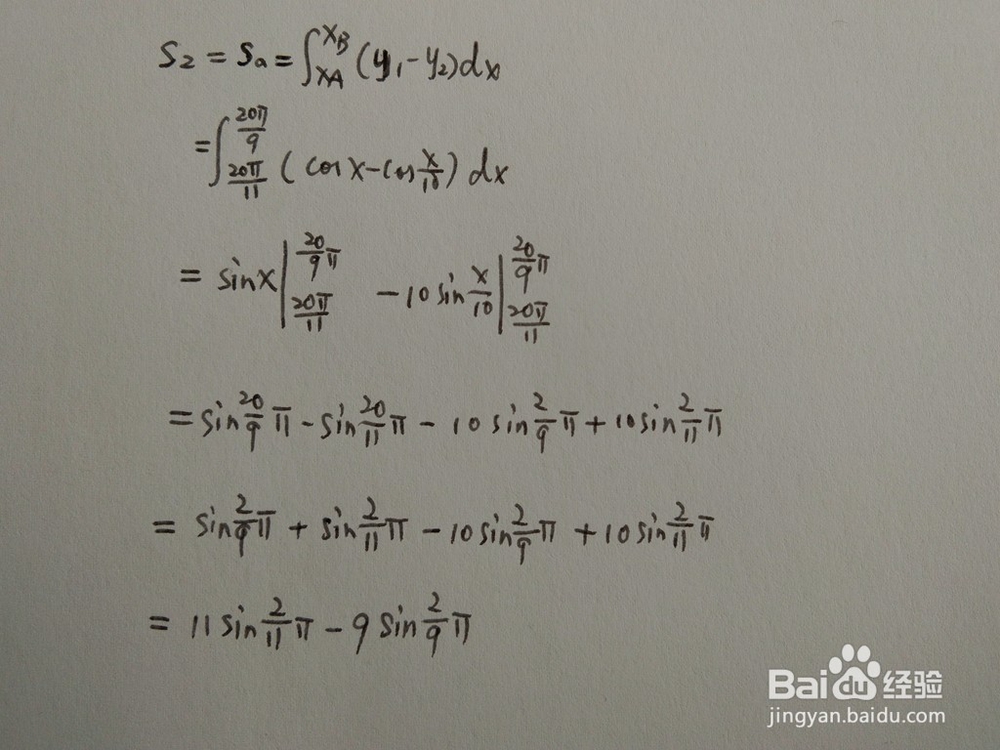 S₂ = Sₐ = ∫_{XA}^{XB} (y₁ - y₂) dx
= ∫_{20π/11}^{20π/9} (cos x - cos x/10) dx
= sin x |_{20π/11}^{20/9 π} - 10 sin x/10 |_{20π/11}^{20/9 π}
= sin 20/9 π - sin 20/11 π - 10 sin 2/9 π + 10 sin 2/11 π
= sin 2/9 π + sin 2/11 π - 10 sin 2/9 π + 10 sin 2/11 π
= 11 sin 2/11 π - 9 sin 2/9 π
Baidu 经验
jingyan.baidu.com